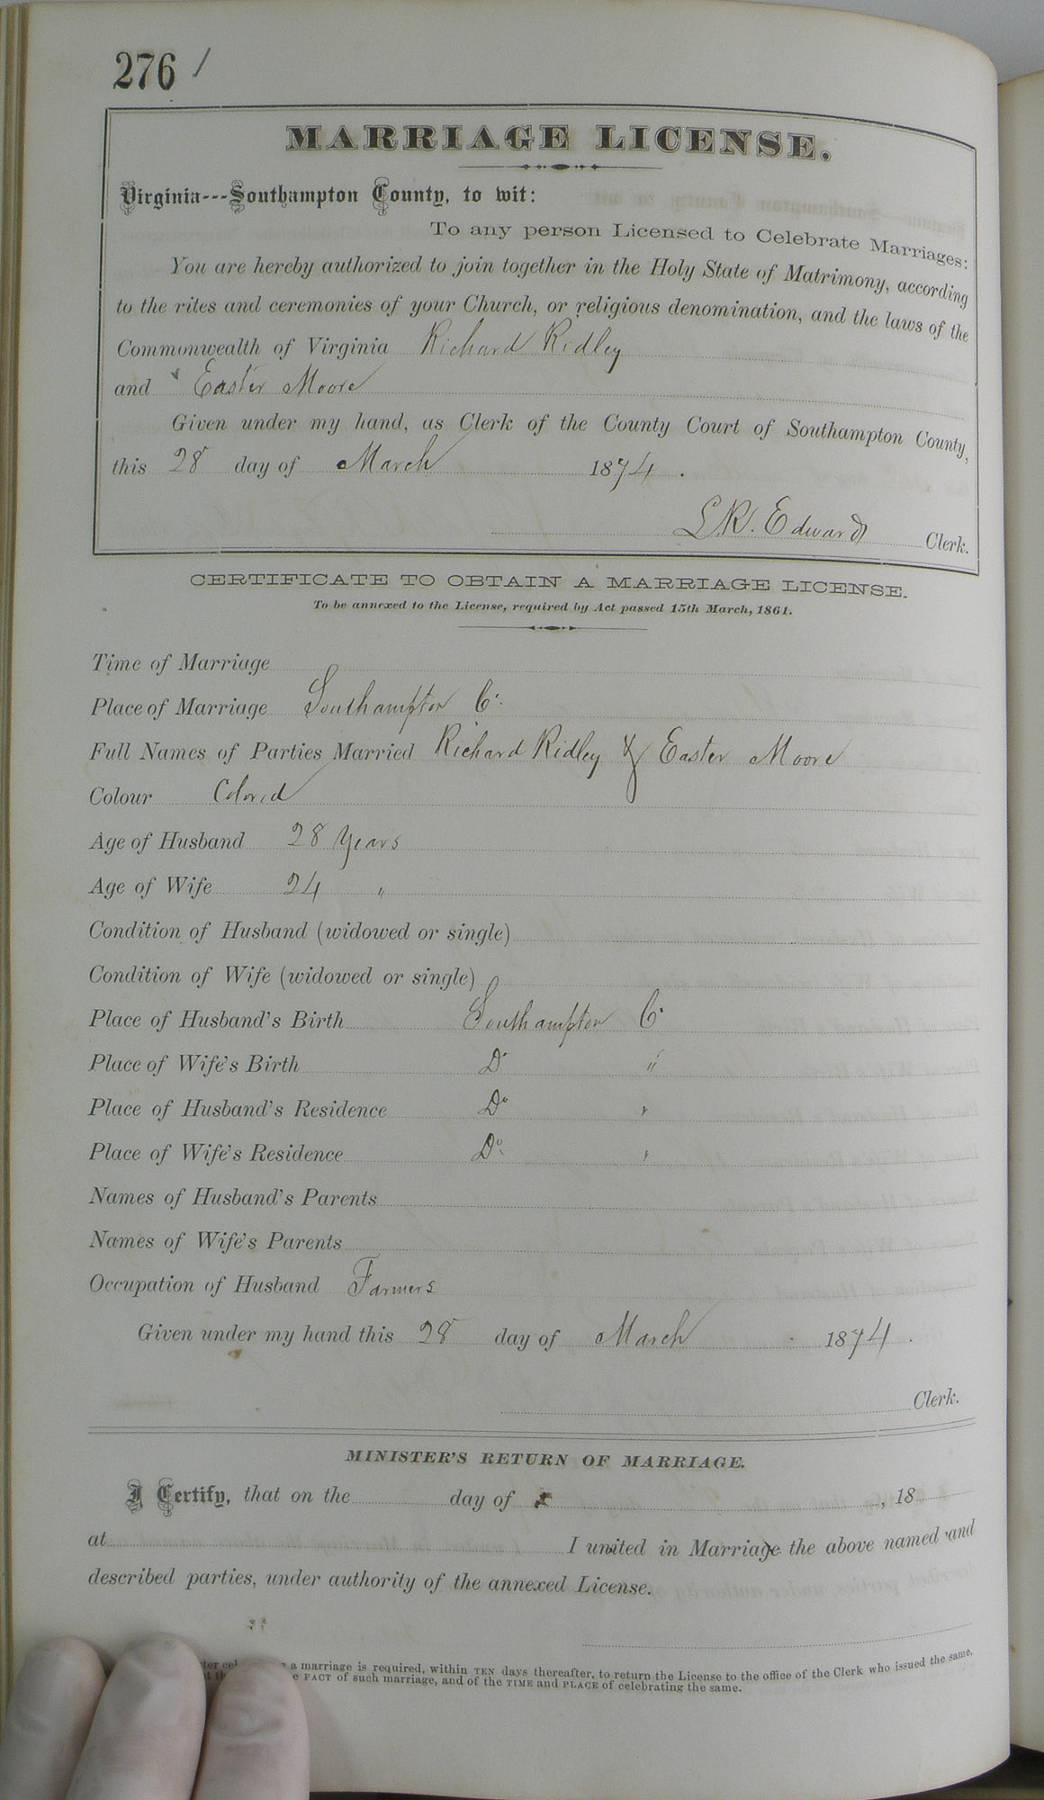 276 /
MARRIAGE LICENSE.
Virginia---Southampton County, to wit:
To any person Licensed to Celebrate Marriages:
You are hereby authorized to join together in the Holy State of Matrimony, according
to the rites and ceremonies of your Church, or religious denomination, and the laws of the
Commonwealth of Virginia Richard Ridley
and Easter Moore
Given under my hand, as Clerk of the County Court of Southampton County,
this 28 day of March 1874.
L.R. Edwards Clerk.
CERTIFICATE TO OBTAIN A MARRIAGE LICENSE.
To be annexed to the License, required by Act passed 15th March, 1861.
Time of Marriage
Place of Marriage Southampton Co.
Full Names of Parties Married Richard Ridley & Easter Moore
Colour Colored
Age of Husband 28 Years
Age of Wife 24 "
Condition of Husband (widowed or single)
Condition of Wife (widowed or single)
Place of Husband's Birth Southampton Co
Place of Wife's Birth Do "
Place of Husband's Residence Do "
Place of Wife's Residence Do "
Names of Husband's Parents
Names of Wife's Parents
Occupation of Husband Farmers
Given under my hand this 28 day of March 1874.
Clerk.
MINISTER'S RETURN OF MARRIAGE.
I Certify, that on the day of , 18
at I united in Marriage the above named and
described parties, under authority of the annexed License.
a marriage is required, within TEN days thereafter, to return the License to the office of the Clerk who issued the same,
FACT of such marriage, and of the TIME and PLACE of celebrating the same.